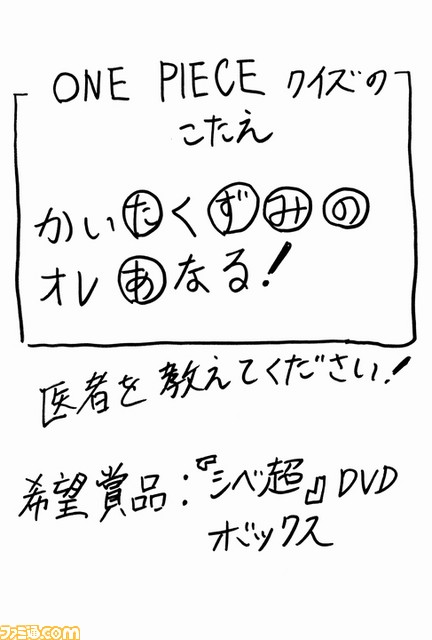 ONE PIECE クイズの
こたえ
かいたくずみの
オレあなる!
医者を教えてください!
希望賞品:『シベ超』DVD
ボックス
ファミ通.com